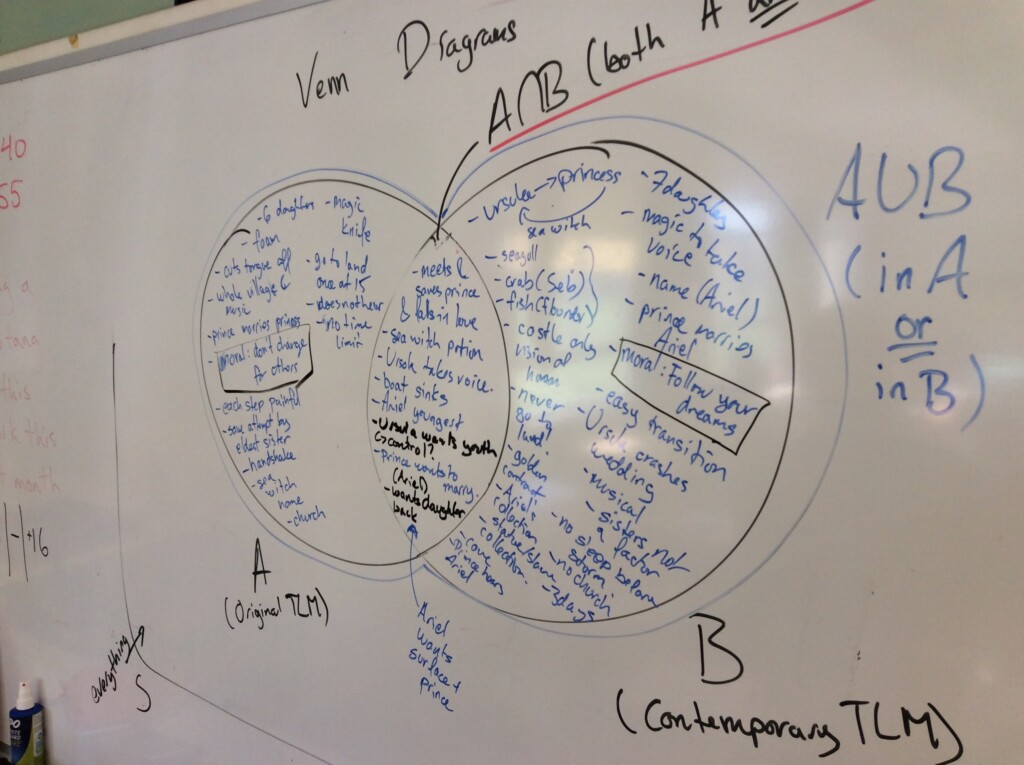 Venn Diagrams
A∩B (both A
A∪B
(in A
or
in B)
40
55
- 6 daughters
- foam
- cuts tongue off
- whole village &
music
- prince marries princess
- moral: don't change
for others
- each step painful
- saw attempt by
eldest sister
- handshake
- sea
witch
home
- church
- magic
knife
- go to land
once at 15
- does not hear
- no time
limit
- meets &
saves prince
& falls in love
- sea witch potion
- Ursula takes voice.
- boat sinks
- Ariel youngest
- Ursula wants youth
↳control?
- prince wants to
marry.
(Ariel)
- wants daughter
back
- ursula → princess
sea witch
- seagull
- crab (Seb)
- fish (flounder)
- castle only
- never
go to
land!
- golden
contract
- Ariel's
collection
- statue/
collection.
- cave
- Prince hears
Ariel
- 7 daughters
- magic to take
voice
- name (Ariel)
- prince marries
Ariel
- moral: Follow your
dreams
- easy transition
- Ursula crashes
wedding
- musical
- sisters not
a factor
- no sleep before
storm
- no church
- 3 days
A
(Original TLM)
Ariel
wants
surface +
prince
B
(Contemporary TLM)
everything
S